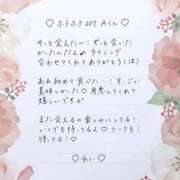 ♡ホテホテ207 Aくん♡
やっと会えたー!ずっと会いた
かったんだよぉ タイミング
合わせてくれてありがとう(泣)
あれ初めて食べたー!すっごい
美味しかった♡ 用意してくれて
嬉しいですଓ
また会えるの楽しみにしてる!
いつでも待ってるよ♡ トークも!
待ってる♡
♡れい♡